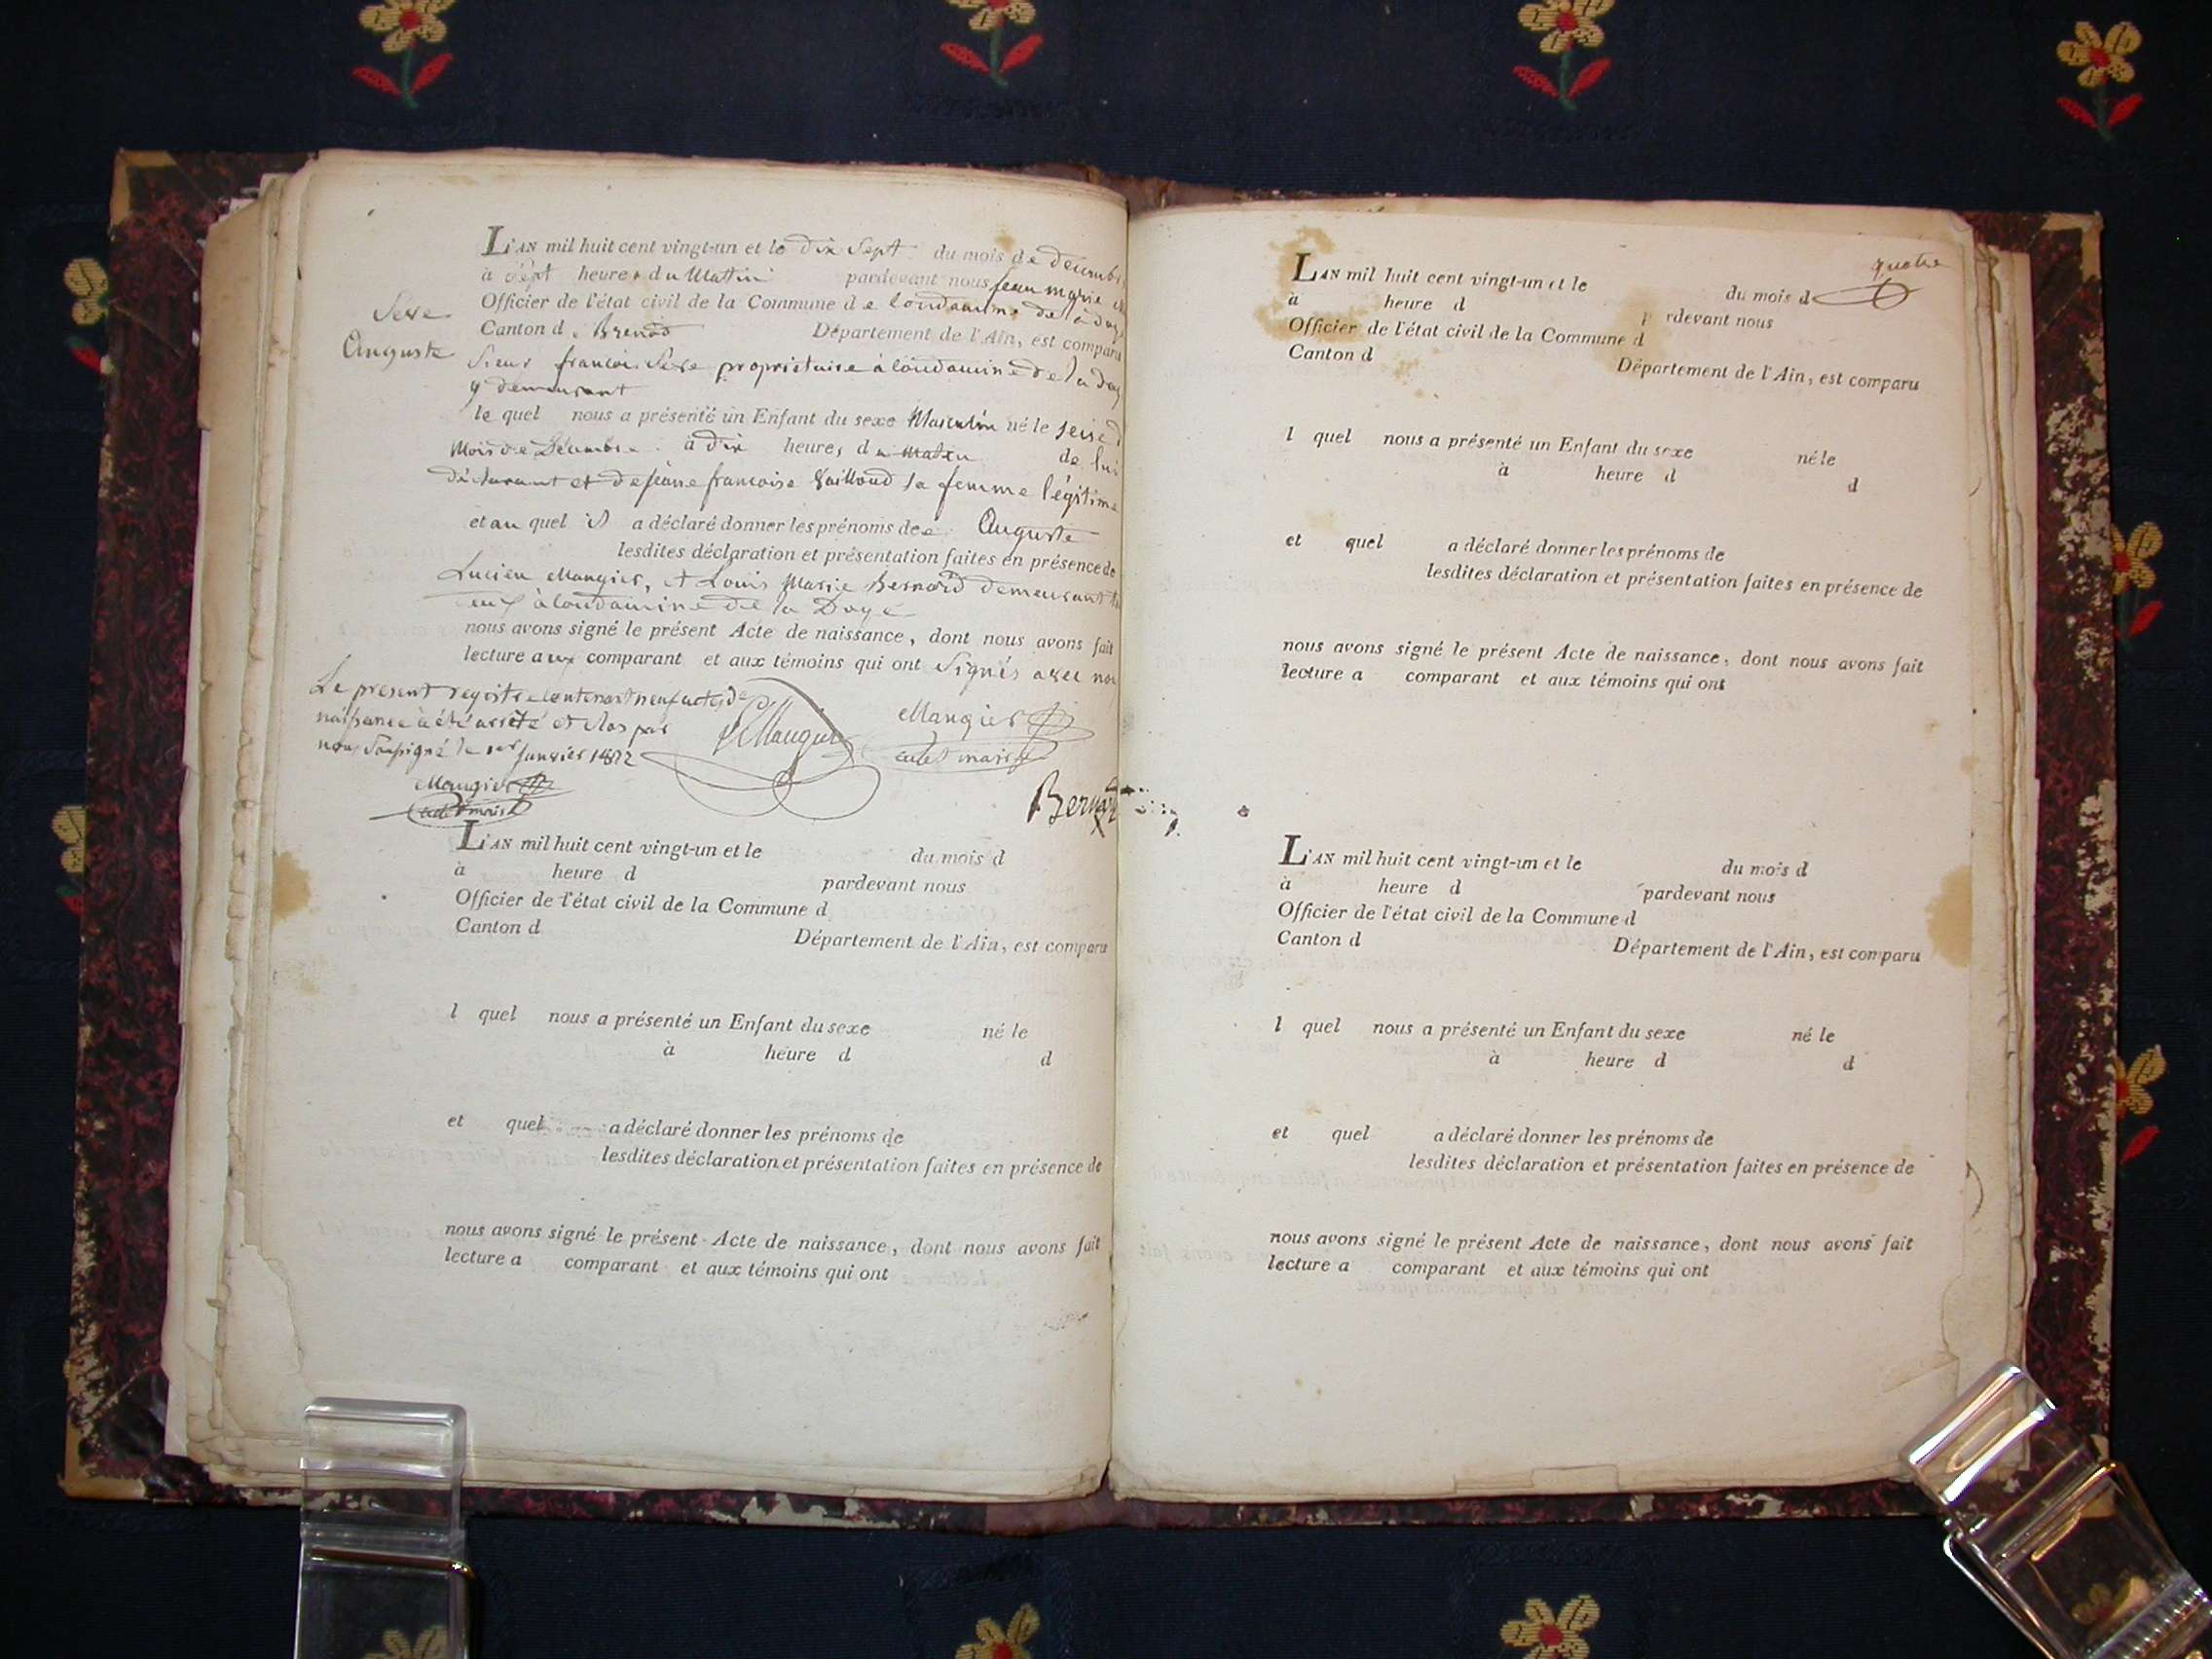 L'AN mil huit cent vingt-un et le dix Sept du mois de décembre
à Sept heures du Mattin pardevant nous jean marie
Officier de l'état civil de la Commune de
Canton de Brenod Département de l'Ain, est comparu
Sieur francois Seve propriétaire à
y demeurant
le quel nous a présenté un Enfant du sexe Masculin né le seise d
Mois de Décembre à dix heures du Matin de lui
déclarant et de jeane francoise sa femme légitime
et au quel il a déclaré donner les prénoms de Auguste
lesdites déclaration et présentation faites en présence de
Lucien Mangier, et Louis Marie Bernard demeurant
eux à de la Doye
nous avons signé le présent Acte de naissance, dont nous avons fait
lecture aux comparant et aux témoins qui ont Signés avec nou
Seve
Auguste
Le present registre contenant neuf actes de
naissance a été arrêté et clos par
nous Soussigné le 1er Janvier 1822
Mangier
Mangier
Mangier
Bernard
L'AN mil huit cent vingt-un et le du mois d
à heure d pardevant nous
Officier de l'état civil de la Commune d
Canton d Département de l'Ain, est comparu
l quel nous a présenté un Enfant du sexe né le
à heure d d
et quel a déclaré donner les prénoms de
lesdites déclaration et présentation faites en présence de
nous avons signé le présent Acte de naissance, dont nous avons fait
lecture a comparant et aux témoins qui ont
quatre
L'AN mil huit cent vingt-un et le du mois d
à heure d pardevant nous
Officier de l'état civil de la Commune d
Canton d Département de l'Ain, est comparu
l quel nous a présenté un Enfant du sexe né le
à heure d d
et quel a déclaré donner les prénoms de
lesdites déclaration et présentation faites en présence de
nous avons signé le présent Acte de naissance, dont nous avons fait
lecture a comparant et aux témoins qui ont
L'AN mil huit cent vingt-un et le du mois d
à heure d pardevant nous
Officier de l'état civil de la Commune d
Canton d Département de l'Ain, est comparu
l quel nous a présenté un Enfant du sexe né le
à heure d d
et quel a déclaré donner les prénoms de
lesdites déclaration et présentation faites en présence de
nous avons signé le présent Acte de naissance, dont nous avons fait
lecture a comparant et aux témoins qui ont